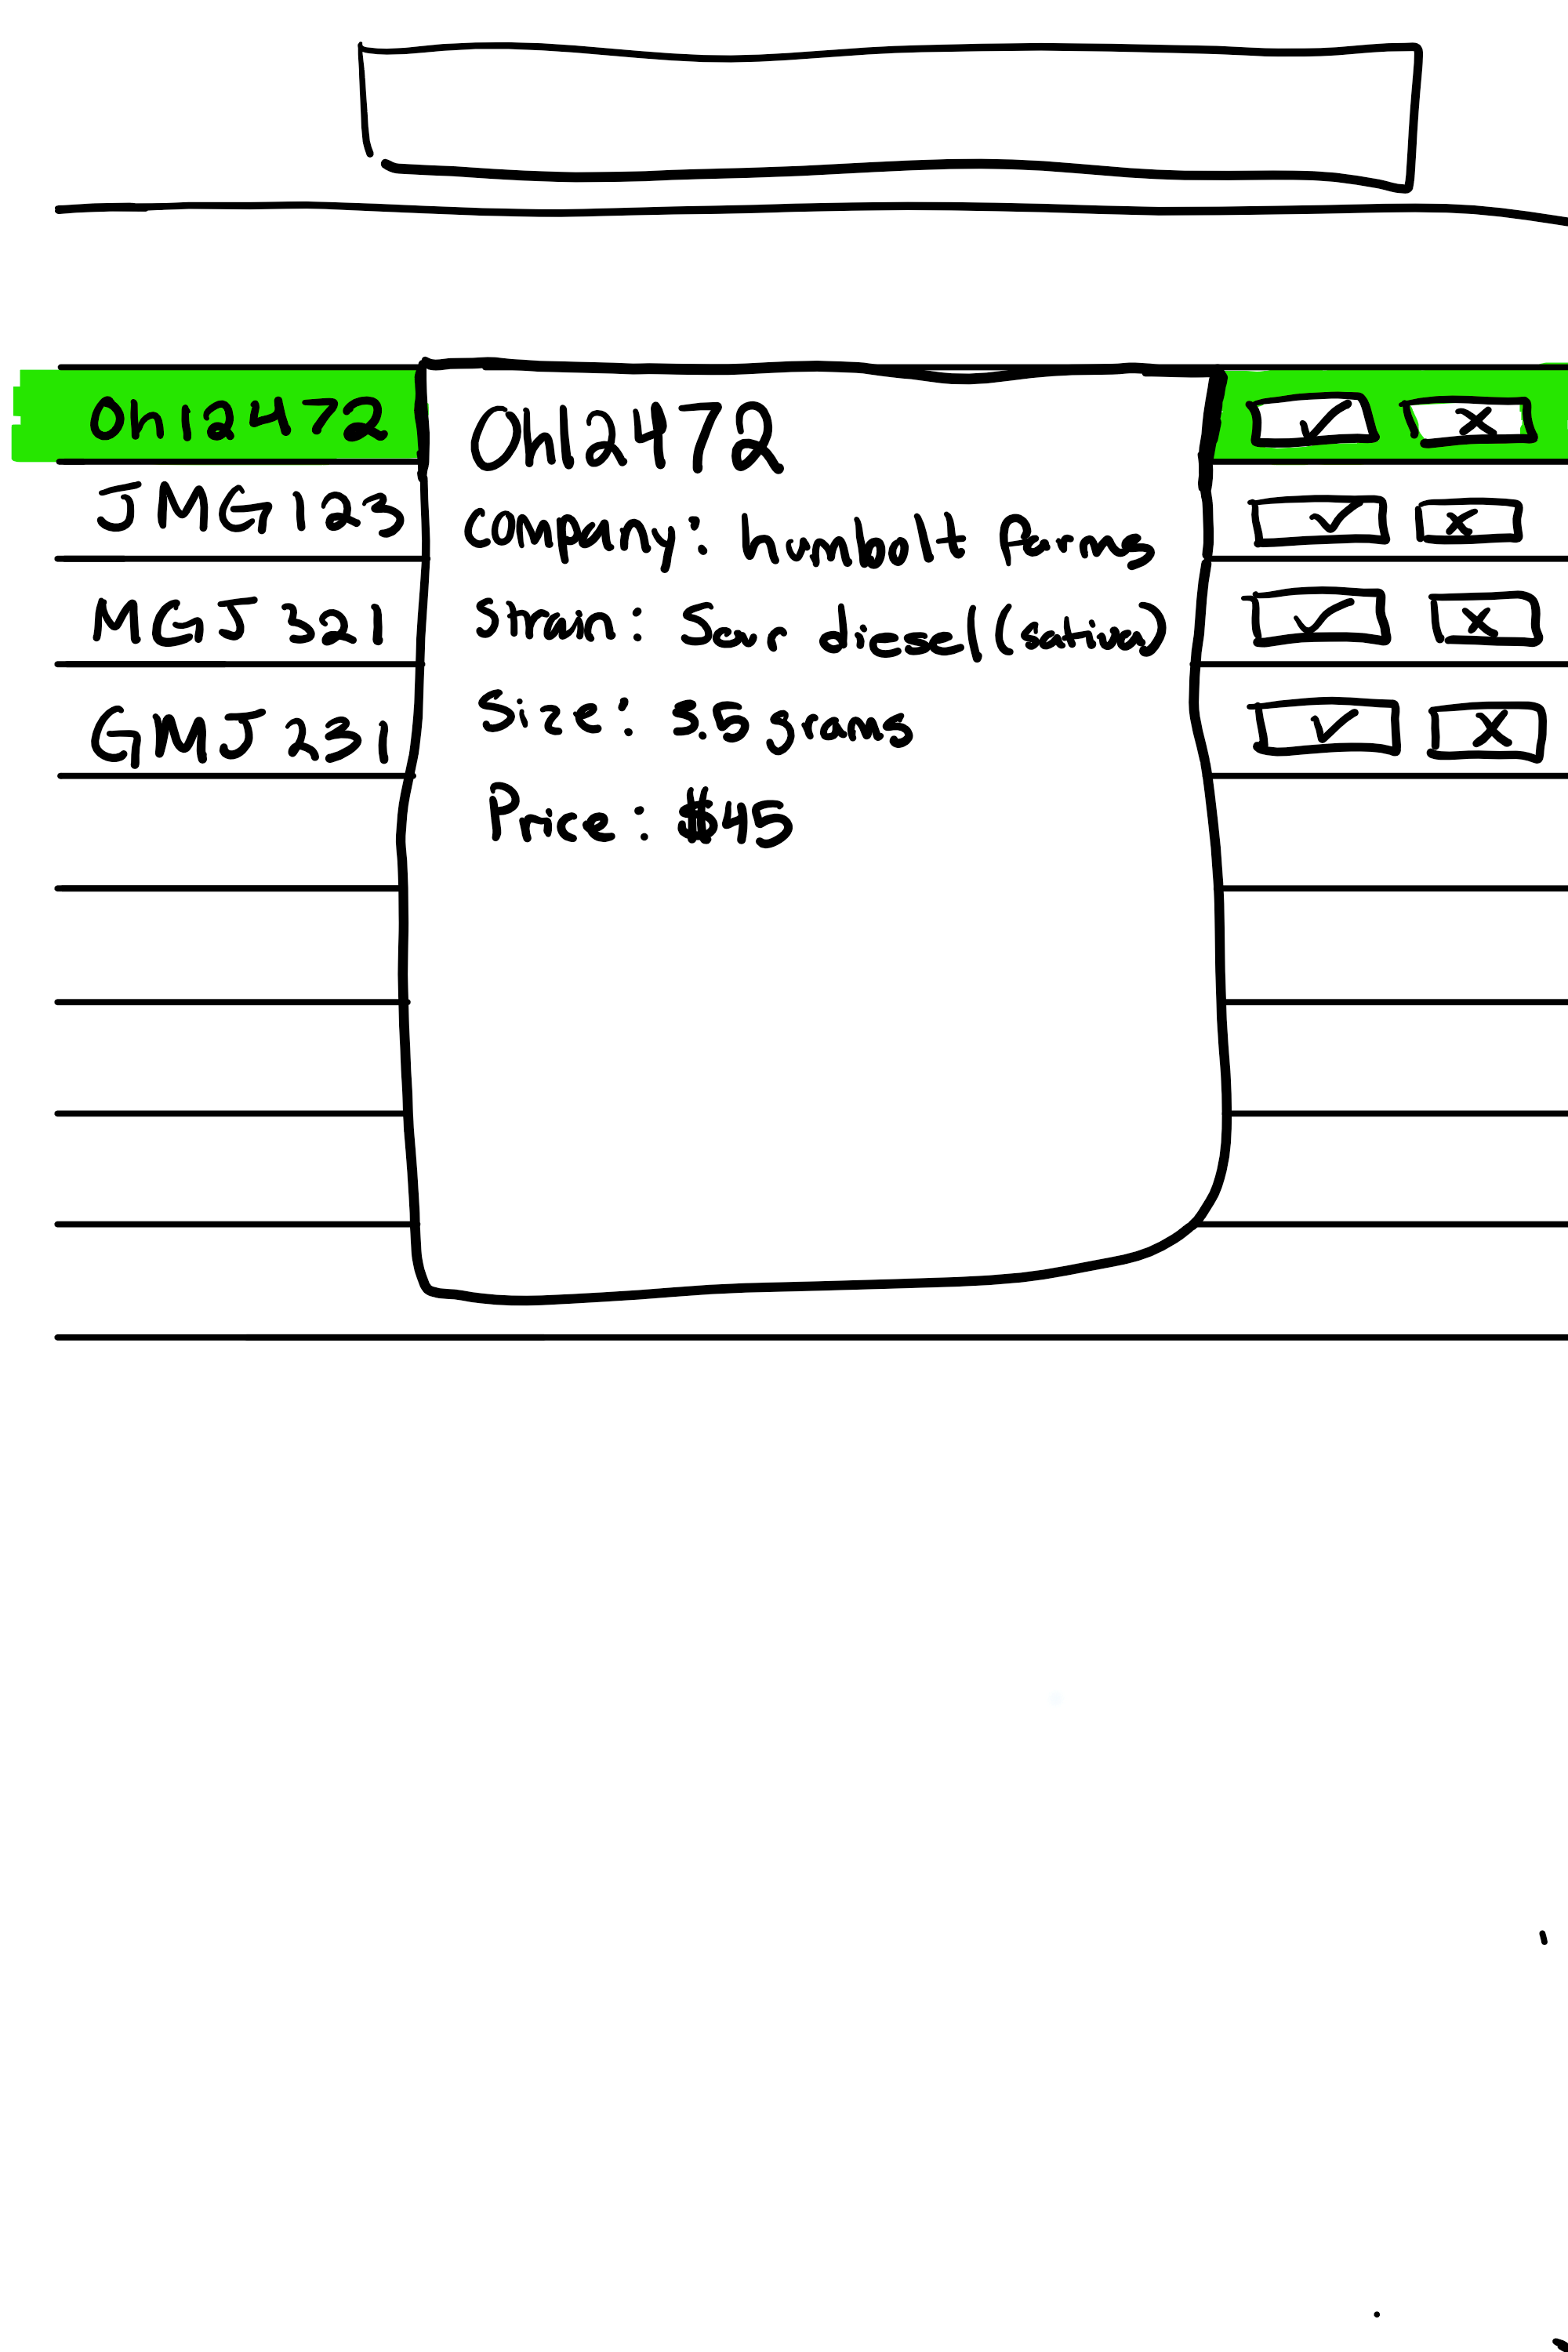 Oh12472
JMG 123
MGJ 321
GMJ 231
Oh12472
Company: humbolt Farms
Strain: Sour diesel (sativa)
Size: 3.5 grams
Price: $45